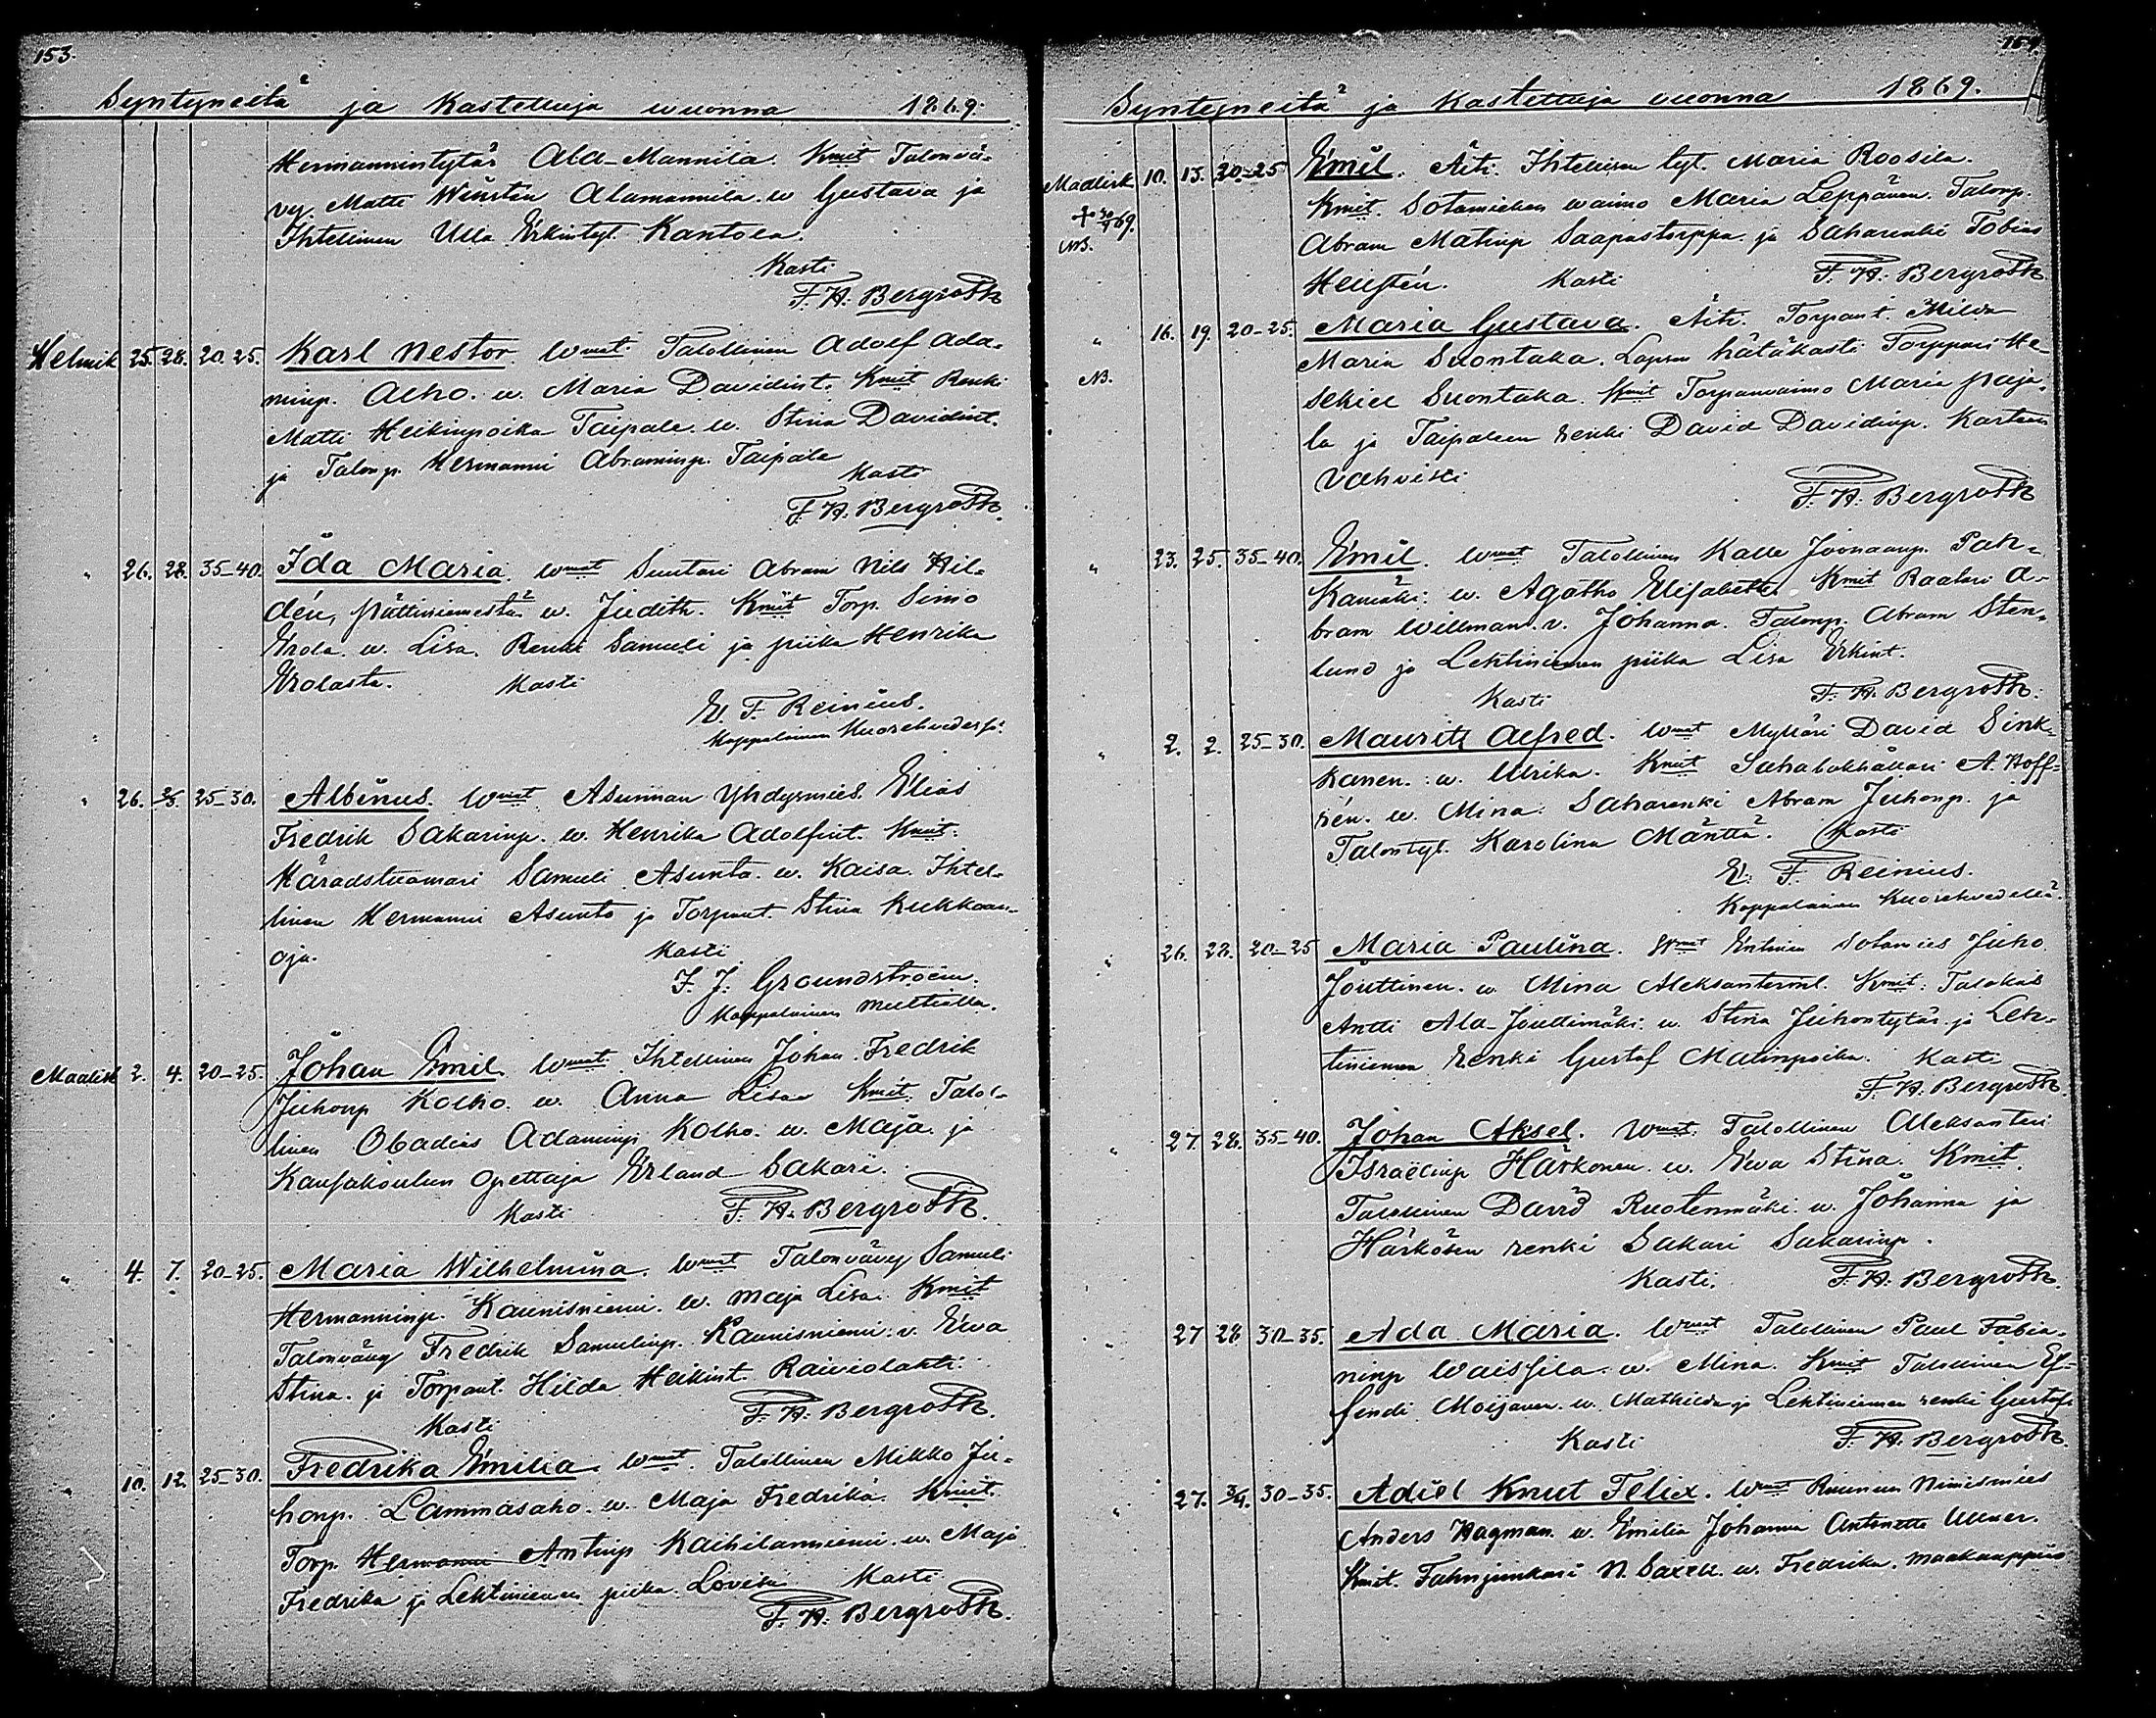 153.
Syntyneitä ja Kastettuja wuonna 1869.
Hermannintytär Ala-Mannila. Kmit Talonvä-
vy. Matti Winstén Alamannila. w Gustava ja
Ihtellinen Ulla Erkintyt. Kantola.
Kasti
F. H. Bergroth
Helmik 25. 28. 20. 25. Karl Nestor. Wmat Talollinen Adolf Ada-
minp. Alho. w. Maria Davidint. Kmit Renki
Matti Heikinpoika Taipale. w. Stina Davidint.
ja Talonp. Hermanni Abraminp. Taipale
Kasti
F. H. Bergroth.
" 26. 28. 35-40. Ida Maria. Wmat Suutari Abram Nils Hil-
dén, Pättiniemestä w. Judith. Kmit Torp. Simo
Erola. w. Lisa. Renki Samuli ja piika Henrika
Erolasta. Kasti
E. F. Reinius.
Kappalainen Kuorehvedessä.
" 26. 25-30. Albinus. Wmat Asunnan Yhdysmies. Elias
Fredrik Sakarinp. w. Henrika Adolfint. Kmit.
Häradstuomari Samuli Asunta. w. Kaisa. Ihtel-
linen Hermanni Asunta ja Torpant. Stina Kukkoan-
oja. Kasti
F. J. Groundstroem.
Kappalainen Multialla.
Maalisk 2. 4. 20-25. Johan Emil. Wmat. Ihtellinen Johan Fredrik
Juhonp Kolho. w. Anna Lisa. Kmit. Talol-
linen Obadias Adaminp. Kolho. w. Maja. ja
Kansakoulun Opettaja Erland Sakari.
Kasti F. H. Bergroth.
" 4. 7. 20-25. Maria Wilhelmina. Wmat Talonvävy Samuli
Hermanninp. Kaunisniemi. w. Maja Lisa. Kmit
Talonvävy Fredrik Samulinp. Kaunisniemi. v. Ewa
Stina. ja Torpant. Hilda Heikint. Raiviolahti.
Kasti F. H. Bergroth.
10. 12. 25-30. Fredrika Emilia. Wmat. Talollinen Mikko Ju-
honp. Lammasaho. w. Maja Fredrika. Kmit.
Torp. Hermanni Antinp Kaihilanniemi. w. Maja
Fredrika ja Lehtiniemen piika Lovisa Kasti
F. H. Bergroth.
154.
Syntyneitä ja Kastettuja vuonna 1869.
Maalisk 10. 15. 20-25 Emil. Äiti. Ihtellisen tyt. Maria Roosila.
NB.
Kmit. Sotamiehen waimo Maria Leppänen. Talonp.
Abram Matinp Saapastorppa. ja Saharenki Tobias
Heustén. Kasti F. H. Bergroth
" 16. 19. 20-25. Maria Gustava. Äiti. Torpant. Milda
NB.
Maria Suontaka. Lapsen hätäkasti Torppari He-
sekiel Suontaka. Kmit Torpanvaimo Maria Paja-
la ja Taipaleen renki David Davidinp. Kasteen
Vahvisti
F. H. Bergroth
" 23. 25. 35-40. Emil. Wmat Talollinen Kalle Joonaanp. Pah-
kamäki. w. Agatha Elisabetha. Kmit Raatari A-
bram Willman. v. Johanna. Talonp. Abram Sten-
lund ja Lehtiniemen piika Lisa Erkint.
Kasti F. H. Bergroth.
" 2. 2. 25-30. Mauritz Alfred. Wmat Mylläri David Sink-
kanen. w. Ulrika. Kmit A. Hoff-
rén. w. Mina. Saharenki Abram Juhonp. ja
Talontyt. Karolina Mänttä. Kasti
E. F. Reinius.
Kappalainen Kuorehvedellä.
" 26. 28. 20-25 Maria Paulina. Wmat Entinen Sotamies Juho
Jouttinen. w. Mina Aleksanterint. Kmit. Talokas
Antti Ala-Jouttimäki. w. Stina Juhontytär. ja Leh-
tiniemen renki Gustaf Matinpoika. Kasti
F. H. Bergroth.
" 27. 28. 35-40. Johan Aksel. Wmat. Talollinen Aleksanteri
Israelinp Härkönen. w. Ewa Stina. Kmit.
Talollinen David Ruotenmäki. w. Johanna ja
Härkösen renki Sakari Sakarinp.
Kasti. F. H. Bergroth.
" 27 28 30-35. Ada Maria. Wmat Talollinen Paul Fabia-
ninp Waissila. w. Mina. Kmit Talollinen Ef-
fendi Moijanen. w. Mathilda ja Lehtiniemen renki Gustaf.
Kasti F. H. Bergroth.
" 27. 3/4. 30-35. Adiel Knut Felix. Wmat Nimismies
Anders Hagman. w. Emilia Johanna Antonette
Kmit. Fahnjunkari N. Saxell. w. Fredrika. Maakauppias